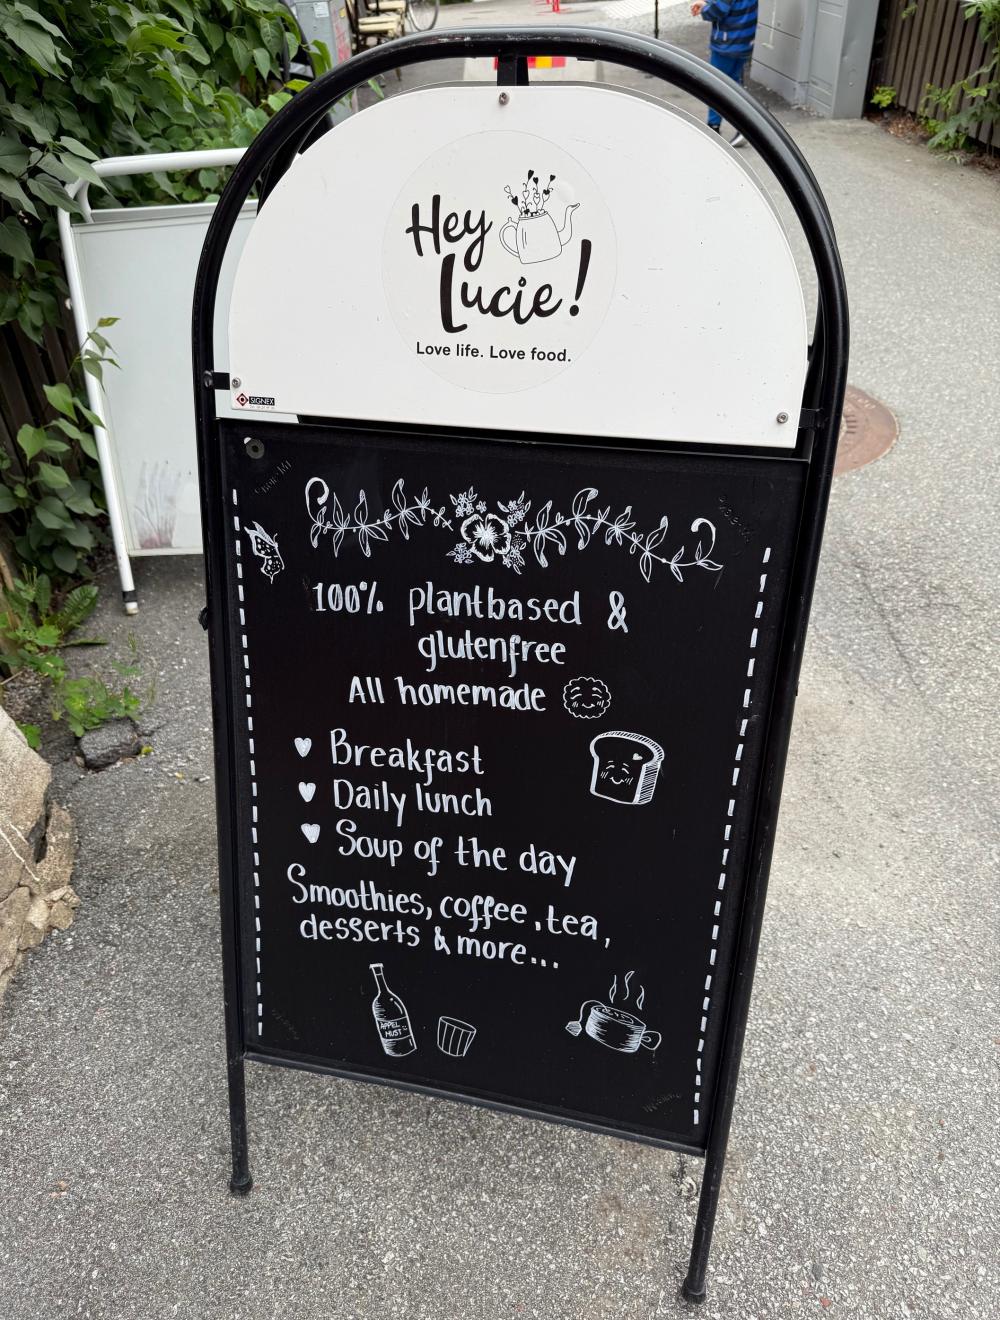 Hey
Lucie!
Love life. Love food.
SIGNEX
100% plantbased &
glutenfree
All homemade
Breakfast
Daily lunch
Soup of the day
Smoothies, coffee, tea,
desserts & more...
ÄPPEL
MUST